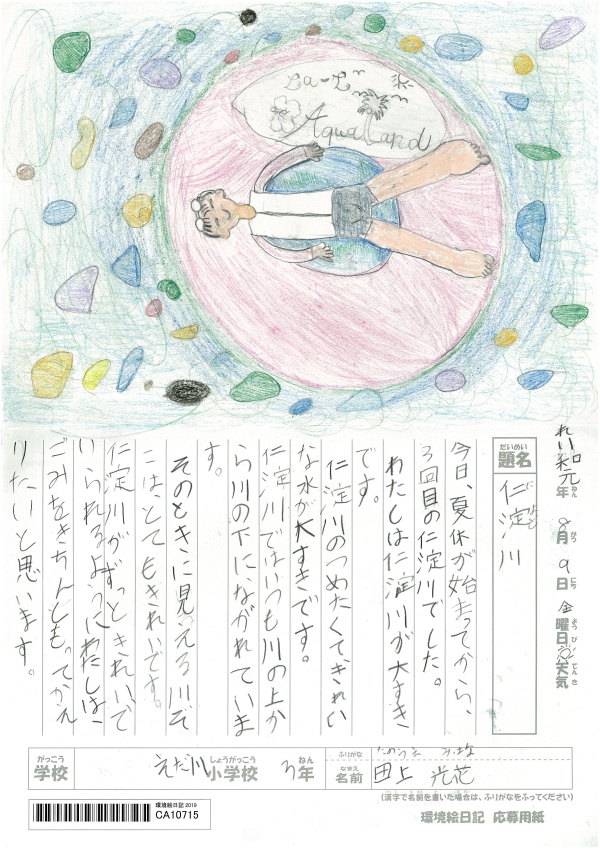 La-L
Aqualand
れい和元年 8月 9日 金曜日 天気
ねん がつ にち ようび てんき
だいめい
題名
仁淀川
によど
今日、夏休が始まってから、
3回目の仁淀川でした。
わたしは仁淀川が大すき
です。
仁淀川のつめたくてきれい
な水が大すきです。
仁淀川ではいつも川の上か
ら川の下にながれていま
す。
そのときに見える川ぞ
こは、とてもきれいです。
仁淀川がずっときれいで
いられるようにわたしは、
ごみをきちんともってかえ
りたいと思います。
がっこう
学校
えだ川 小学校 3年
しょうがっこう ねん
ふりがな
なまえ
名前
田上 光花
(漢字で名前を書いた場合は、ふりがなをふってください)
環境絵日記 応募用紙
環境絵日記 2019
CA10715